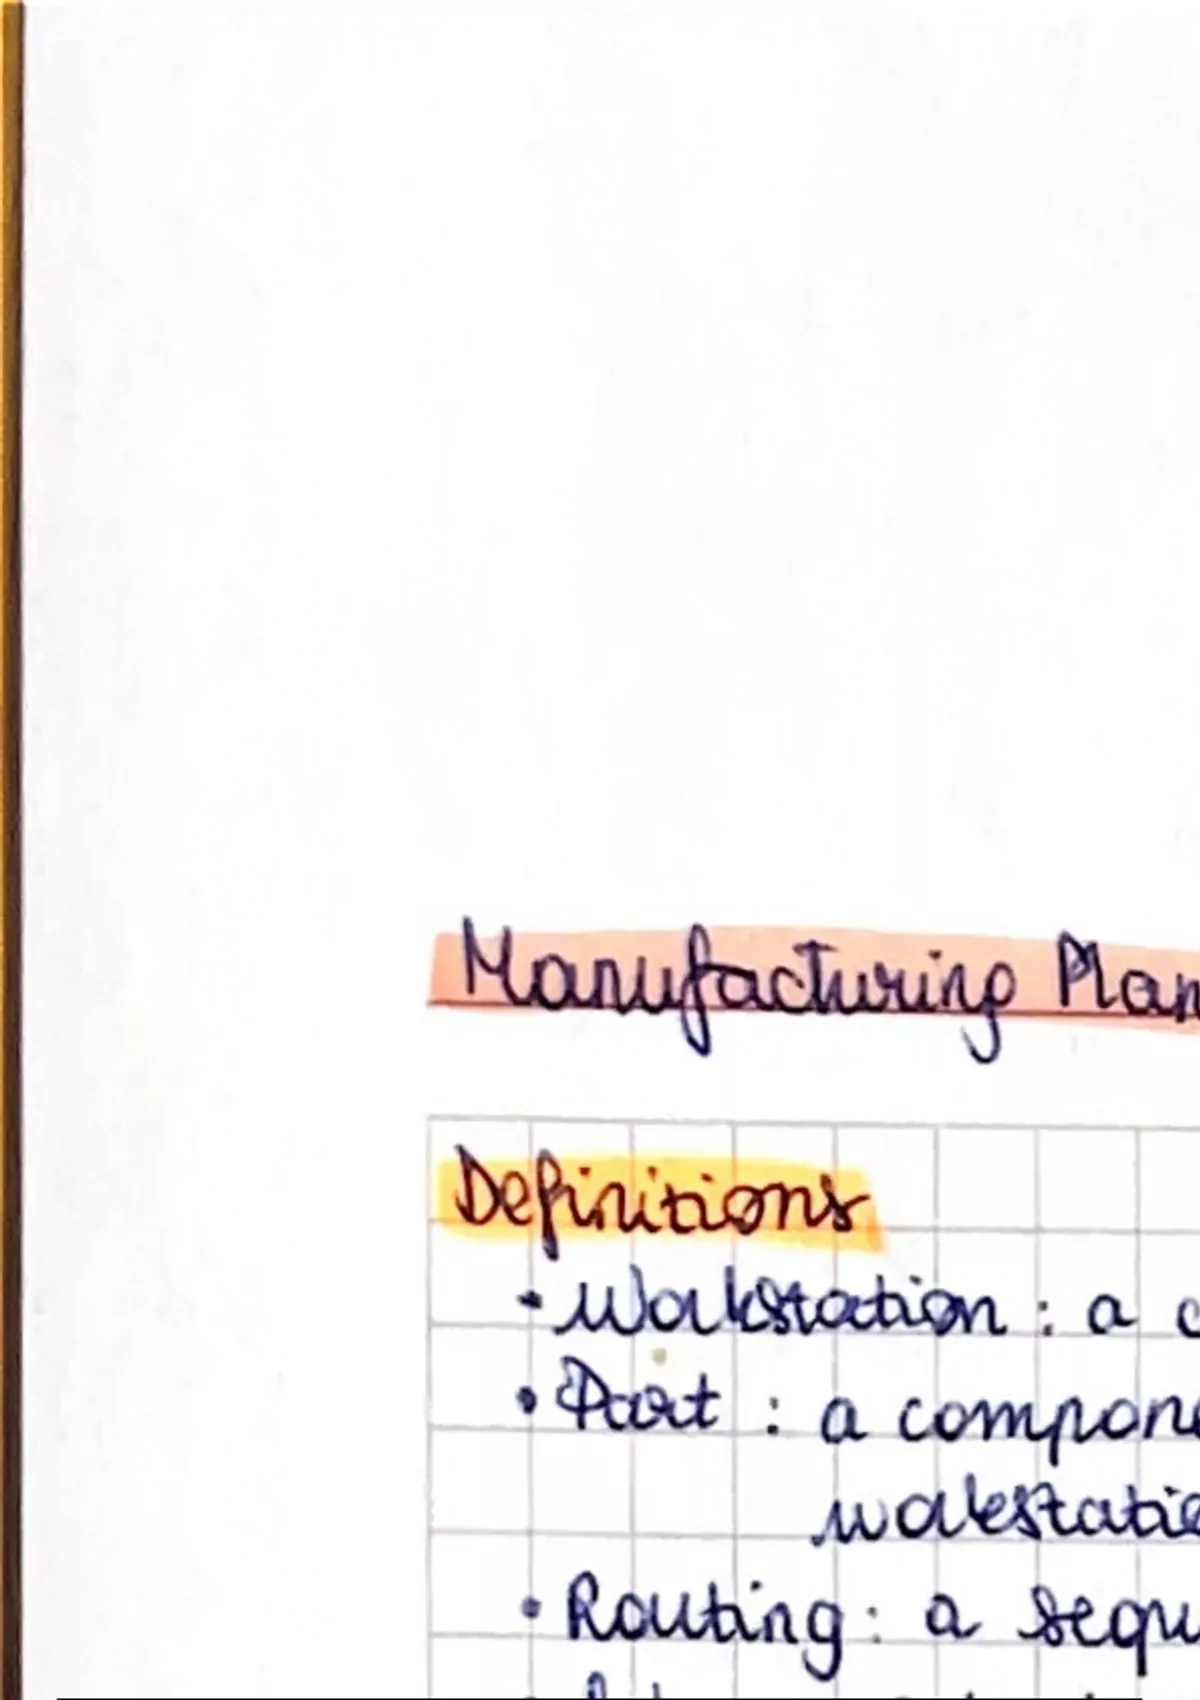 Manufacturing Plan
Definitions
• Workstation : a c
• Part : a compone
workstatio
• Routing : a sequ